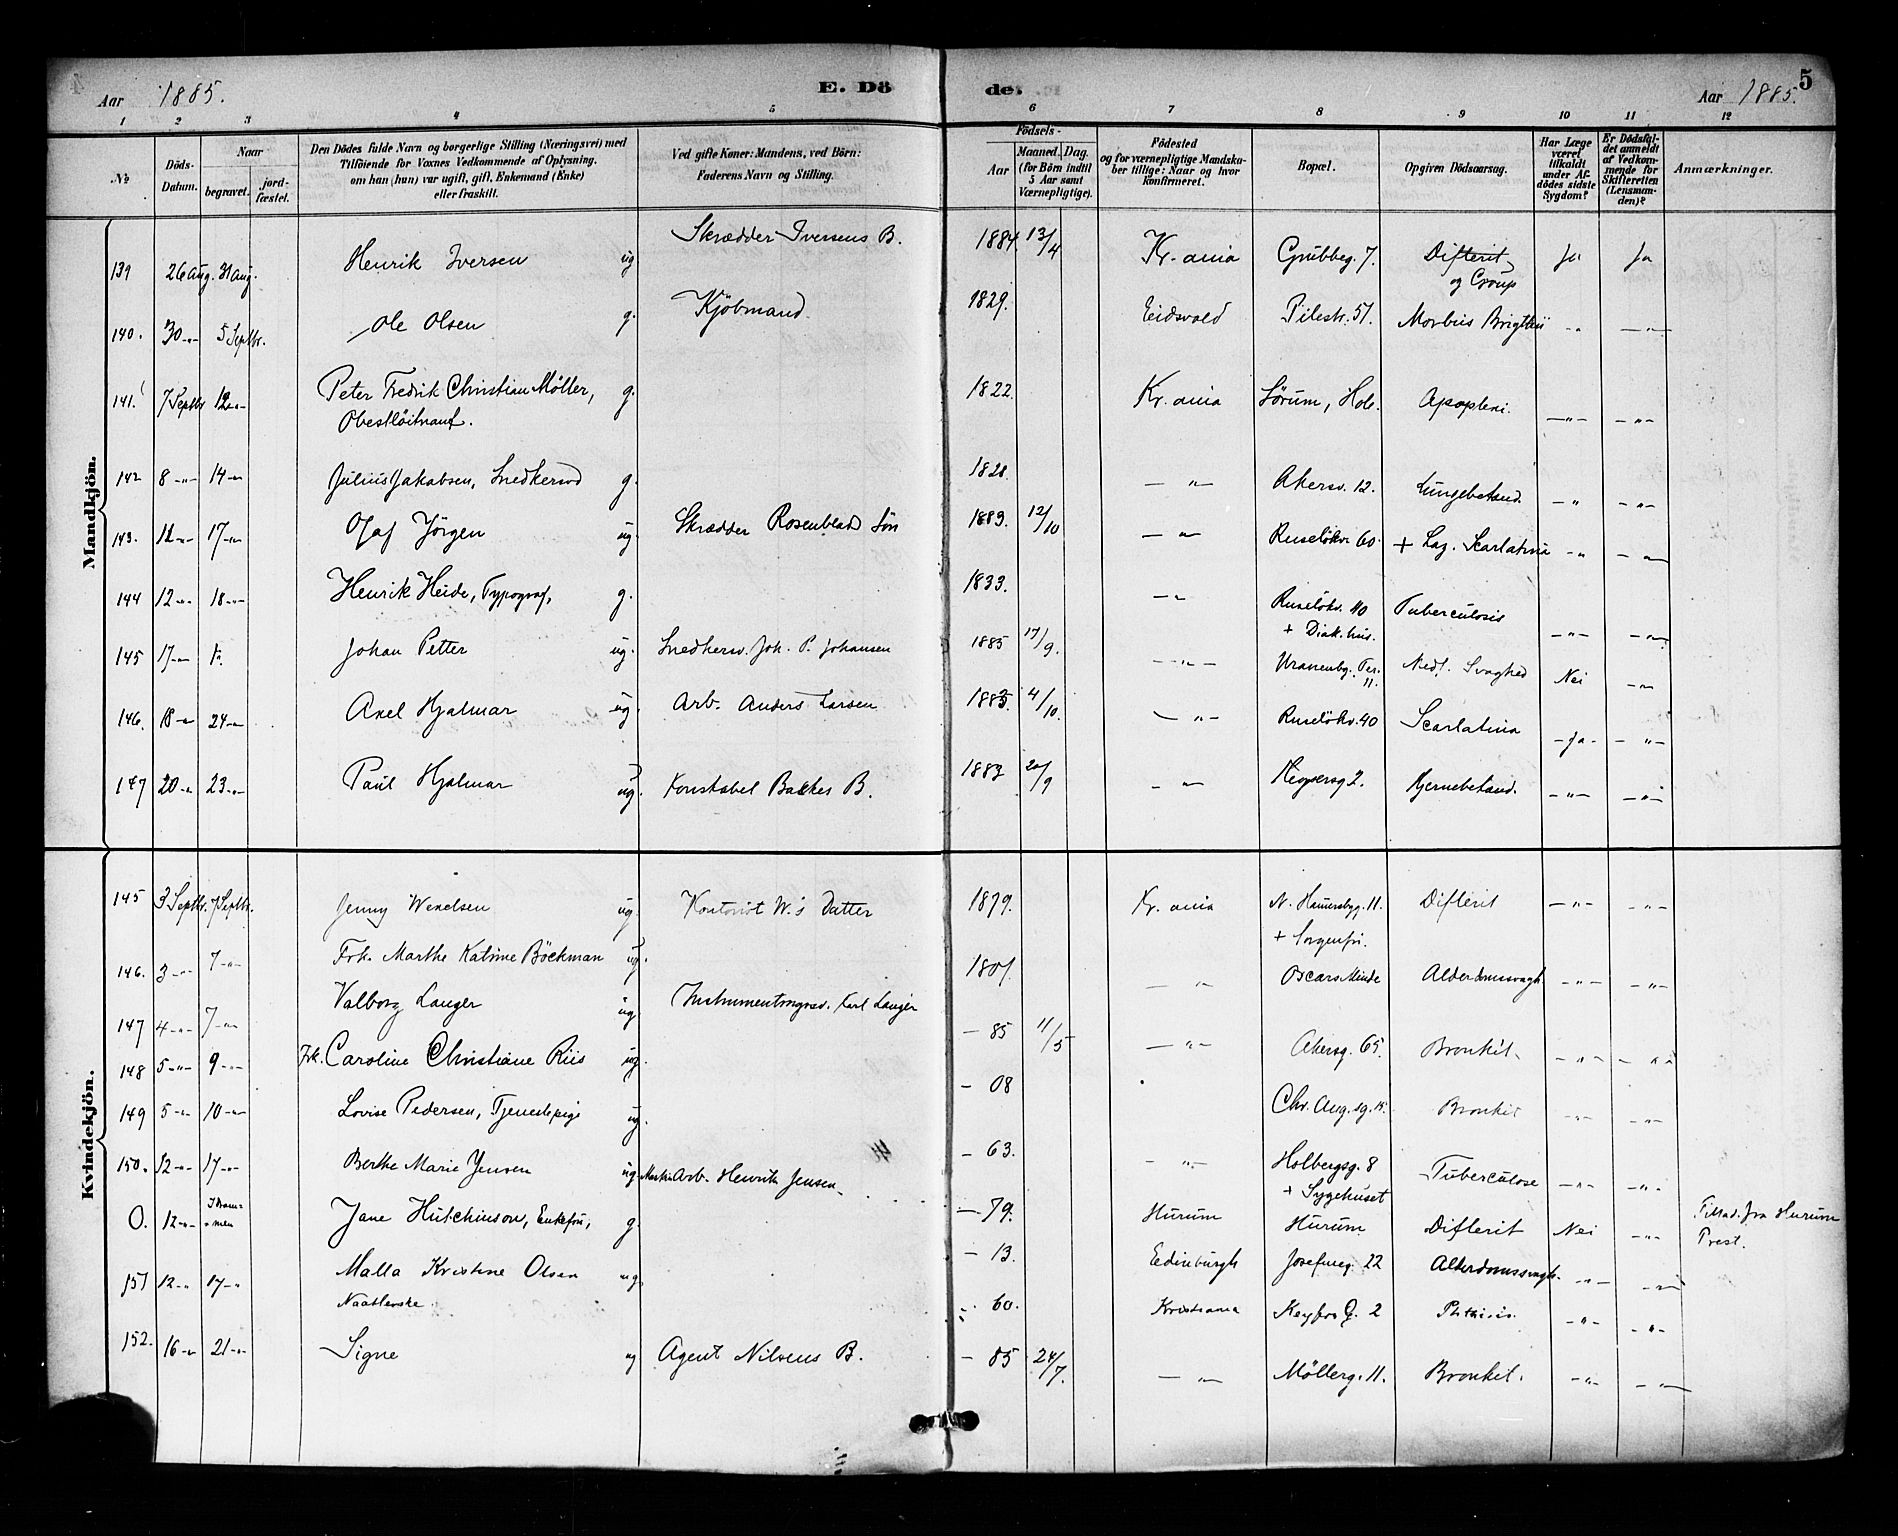 Aar 1885.
E. Dö de.
Aar 1885.
5
1 2 3 4 5 6 7 8 9 10 11 12
№
Döds-Datum.
Naar begravet. jord-fæstet.
Den Dödes fulde Navn og borgerlige Stilling (Næringsvei) med Tilföiende for Voxnes Vedkommende af Oplysning, om han (hun) var ugift, gift, Enkemand (Enke) eller fraskilt.
Ved gifte Koner: Mandens, ved Börn: Faderens Navn og Stilling.
Födsels- Aar Maaned. Dag. (for Börn indtil 5 Aar samt Værnepligtige).
Födested og for værnepligtige Mandskaber tillige: Naar og hvor konfirmeret.
Bopæl.
Opgiven Dödsaarsag.
Har Læge været tilkaldt under Afdödes sidste Sygdom?
Er Dödsfaldet anmeldt af Vedkommende for Skifteretten (Lensmanden)?
Anmærkninger.
Mandkjön.
139 26 Aug. 31 Aug. Henrik Iversen ug Skrædder Iversens B. 1884. 13/4 Kr.ania Grubbeg. 7. Difterit og Croup Ja Ja
140. 30 -"- 5 Septbr. Ole Olsen g. Kjöbmand 1829. Eidsvold Pilestr. 51. Morbus Brigthii -"- -"-
141. 7 Septbr 12 -"- Peter Fredrik Christian Möller, g. 1822. Kr.ania Sörum, Hole. Apoplexi. -"- -"-
Oberstlöitnant.
142 8 -"- 14 -"- Julius Jakobsen, Snedkersvd g. 1828 -"- Akersv. 12. Lungebetænd. -"- -"-
143. 11 -"- 17 -"- Olaf Jörgen ug. Skrædder Rosenblad Sön 1883. 12/10 -"- Ruselökv. 60. + Laz. Scarlatina -"- -"-
144 12 -"- 18 -"- Henrik Heide, Typograf, g. 1833. -"- Ruselökv. 40 + Diak.hus. Tuberculosis -"- -"-
145 17 -"- Johan Petter ug. Snedkersv. Joh. P. Johansen 1885 17/9. -"- Uranienbg. Ter. 11. Medf. Svaghed Nei -"-
146. 18 -"- 24 -"- Axel Hjalmar ug. Arb. Anders Larsen 1883. 4/10. -"- Ruselökv. 40 Scarlatina -Ja- -"-
147 20 -"- 23 -"- Paul Hjalmar ug. Konstabel Bakkes B. 1883 20/9 -"- Keysersg 2. Hjernebetænd. -"- -"-
Kvindekjön.
145 3 Septbr. 7 Septbr. Jenny Wexelsen ug. Kontorist W.'s Datter 1879. Kr.ania N. Hamersbg. 11. + Sorgenfri. Difterit -"- -"-
146. 3 -"- 7 -"- Frk. Marthe Katrine Böckman ug. 1801. -"- Oscars Minde Alderdomssvagh. -"- -"-
147 4 -"- 7 -"- Valborg Langer ug. Instrumentmgrsv. Karl Langer - 85 11/5 -"- Akersg. 65. Bronkit. -"- -"-
148 5 -"- 9 -"- Frk. Caroline Christiane Riis ug. - 08 Chr. Aug.sg. 15. Bronkit -"- -"-
149 5 -"- 10 -"- Lovise Pedersen, Tjenestepige ug. - 63. -"- Holbergsg. 8 + Sygehuset Tuberculose -"- -"-
150. 12 -"- 17 -"- Berthe Marie Jensen ug. Arb. Henrik Jensen - 79. Hurum Hurum Difterit Nei -"- Tillad. fra Hurum Prest.
0. 12 -"- Jane Hutchinson, Enkefru, g. - 13. Edinburgh Josefineg. 22 Alderdomssvagh. -"- -"-
151 12 -"- 17 -"- Malla Kristine Olsen ug. - 60. Kristiania Keysers G. 2 Phthisis. -"- -"-
Naatlerske.
152. 16 -"- 21 -"- Signe ug Agent Nilsens B. - 85 24/7. -"- Möllerg. 11. Bronkit. -"- -"-